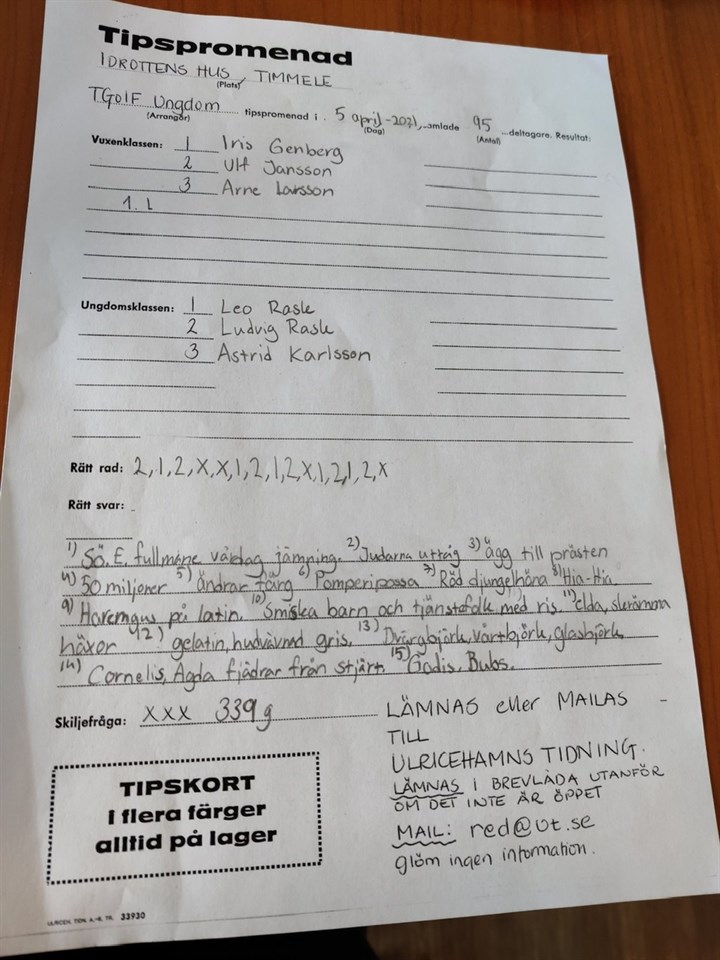 Tipspromenad
IDROTTENS HUS, TIMMELE
(Plats)
TGOIF Ungdom tipspromenad i 5 april -2021, samlade 95 deltagare. Resultat:
(Arrangör) (Dag) (Antal)
Vuxenklassen: 1 Iris Genberg
2 Ulf Jansson
3 Arne Larsson
1. L
Ungdomsklassen: 1 Leo Rask
2 Ludvig Rask
3 Astrid Karlsson
Rätt rad: 2,1,2,X,X,1,2,1,2,X,1,2,1,2,X
Rätt svar:
1) Sö. E. fullmåne vårdag jämning. 2) Judarna uttåg 3) ägg till prästen
4) 50 miljoner 5) ändrar färg 6) Pomperipossa 7) Röd djungelhöna 8) Hia-Hia
9) Haremgus på latin. 10) Smiska barn och tjänstefolk med ris. 11) elda, skrämma
häxor 12) gelatin, hudvävnad gris. 13) Dvärgbjörk, vårtbjörk, glasbjörk
14) Cornelis, Agda fjädrar från stjärt. 15) Godis. Bubs.
Skiljefråga: XXX 339 g
LÄMNAS eller MAILAS -
TILL
ULRICEHAMNS TIDNING.
LÄMNAS I BREVLÅDA UTANFÖR
OM DET INTE ÄR ÖPPET
MAIL: red@ut.se
glöm ingen information.
TIPSKORT
i flera färger
alltid på lager
ULRICEH. TIDN. A.-B. TR. 33930